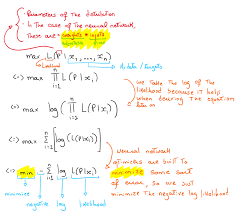 - Parameters of the distribution
- In the case of the neural network,
these are weights & biases
max L(P | x₁, ..., xₙ)
Likelihood
N data / targets
<=> max ∏ L(P | xᵢ)
i=1
we take the log of the
likelihood because it helps
when deriving the equation
later on
<=> max log ( ∏ L(P | xᵢ) )
i=1
<=> max Σ log (L(P | xᵢ))
i=1
neural network
optimizers are built to
minimize some sort
of error, so we just
minimize the negative log likelihood
<=> min - Σ log L(P | xᵢ)
i=1
minimize
negative
log
likelihood